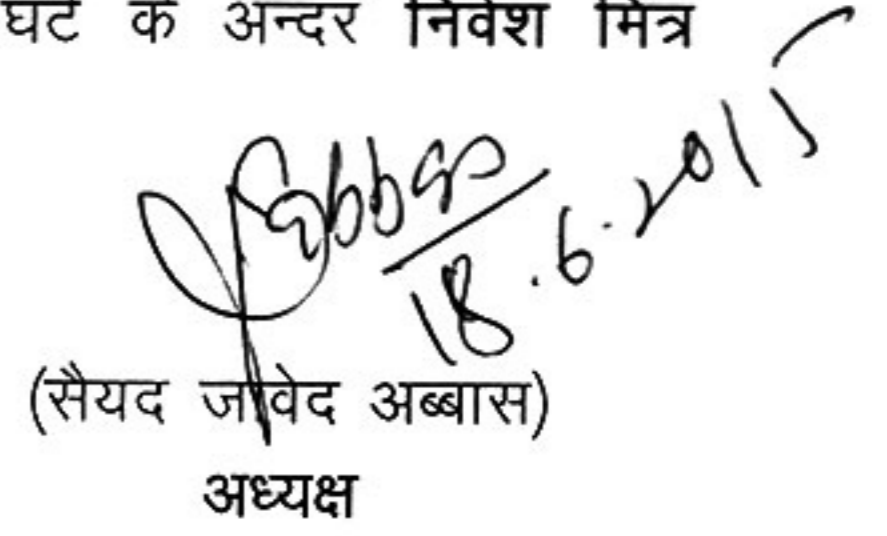 घंटे के अन्दर निवेश मित्र
Abbas
18.6.2015
(सैयद जावेद अब्बास)
अध्यक्ष